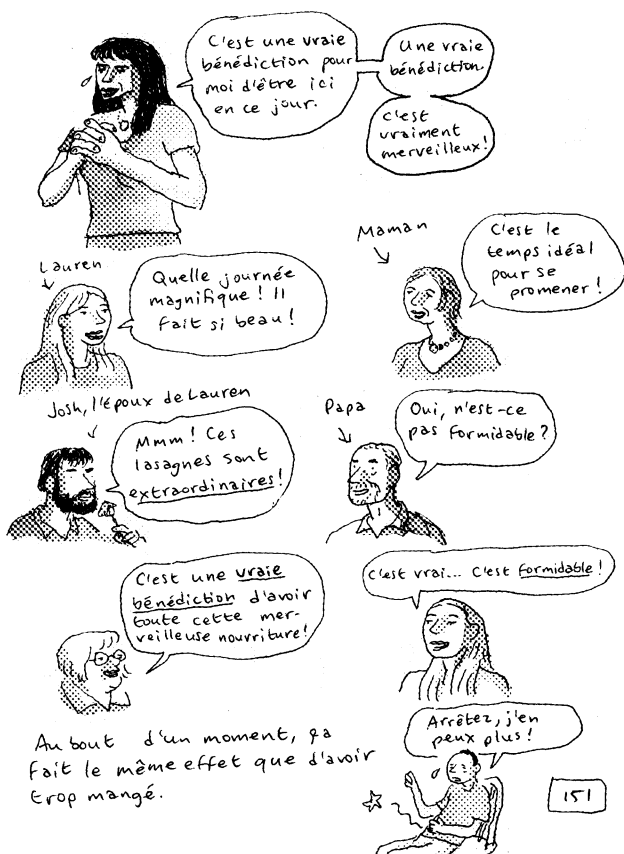 C'est une vraie
bénédiction pour
moi d'être ici
en ce jour.
Une vraie
bénédiction.
C'est
vraiment
merveilleux !
Lauren
Quelle journée
magnifique ! Il
fait si beau !
Maman
C'est le
temps idéal
pour se
promener !
Josh, l'époux de Lauren
Mmm ! Ces
lasagnes sont
extraordinaires !
Papa
Oui, n'est-ce
pas formidable ?
C'est une vraie
bénédiction d'avoir
toute cette mer-
veilleuse nourriture !
C'est vrai... C'est formidable !
Au bout d'un moment, ça
fait le même effet que d'avoir
trop mangé.
Arrêtez, j'en
peux plus !
151